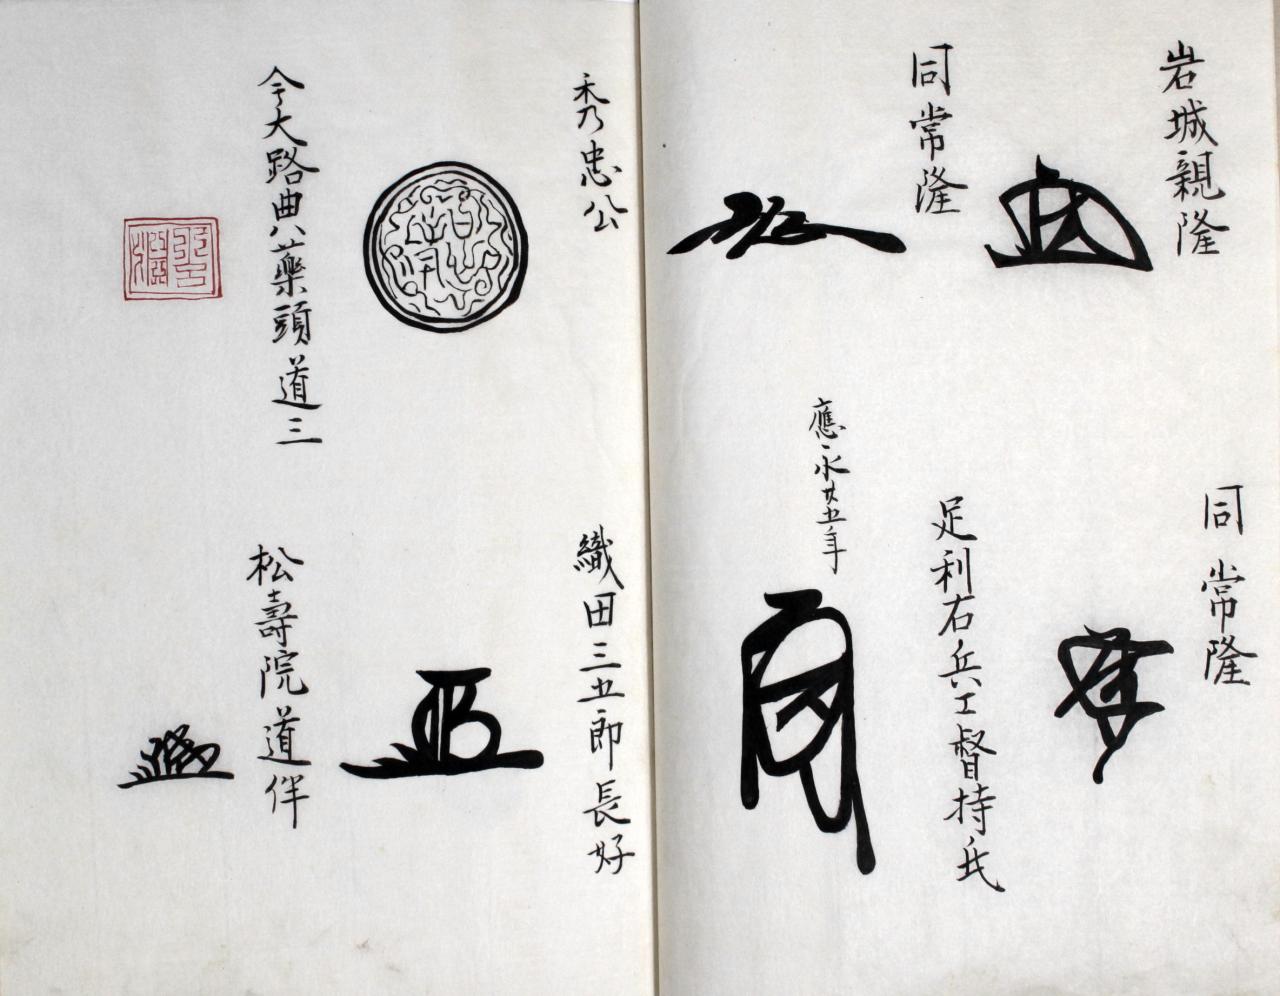 岩城親隆
同常隆
同常隆
足利右兵工督持氏
應永廿五年
秀忠公
今大路典薬頭道三
織田三五郎長好
松壽院道伴